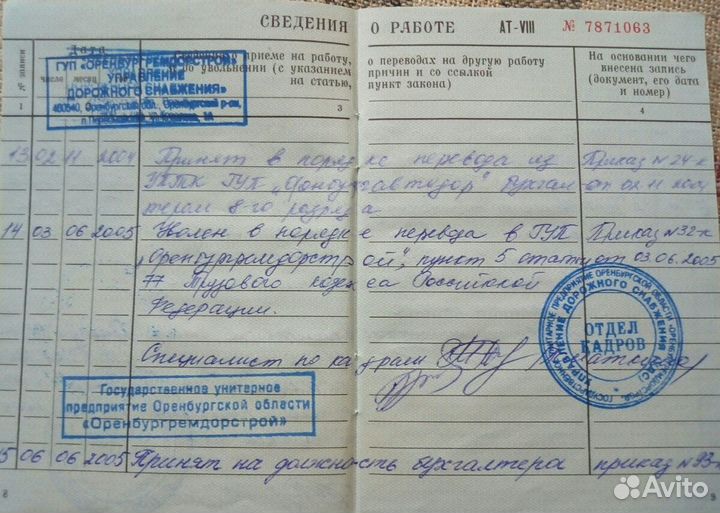 СВЕДЕНИЯ О РАБОТЕ АТ-VIII № 7871063
№ записи
Дата
число месяц
Сведения о приеме на работу, о переводах на другую работу
и об увольнении (с указанием причин и со ссылкой
на статью, пункт закона)
На основании чего
внесена запись
(документ, его дата
и номер)
1 3 4
ГУП «ОРЕНБУРГРЕМДОРСТРОЙ»
УПРАВЛЕНИЕ
ДОРОЖНОГО СНАБЖЕНИЯ»
Оренбургская обл., Оренбургский р-он,
13 02 11 2004 Принят в порядке перевода из Приказ № 24-к
ГУП „ Бухгал от 02.11.2004
тером 8-го разряда
14 03 06 2005 Уволен в порядке перевода в ГУП Приказ № 32-к
„Оренбургремдорстрой", пункт 5 статьи от 03.06.2005
77 Трудового кодекса Российской
Федерации.
Специалист по кадрам
ОТДЕЛ
КАДРОВ
УПРАВЛЕНИЕ ДОРОЖНОГО СНАБЖЕНИЯ
Государственное унитарное
предприятие Оренбургской области
«Оренбургремдорстрой»
5 06 06 2005 Принят на должность бухгалтера приказ № 93-к
8
9
Avito